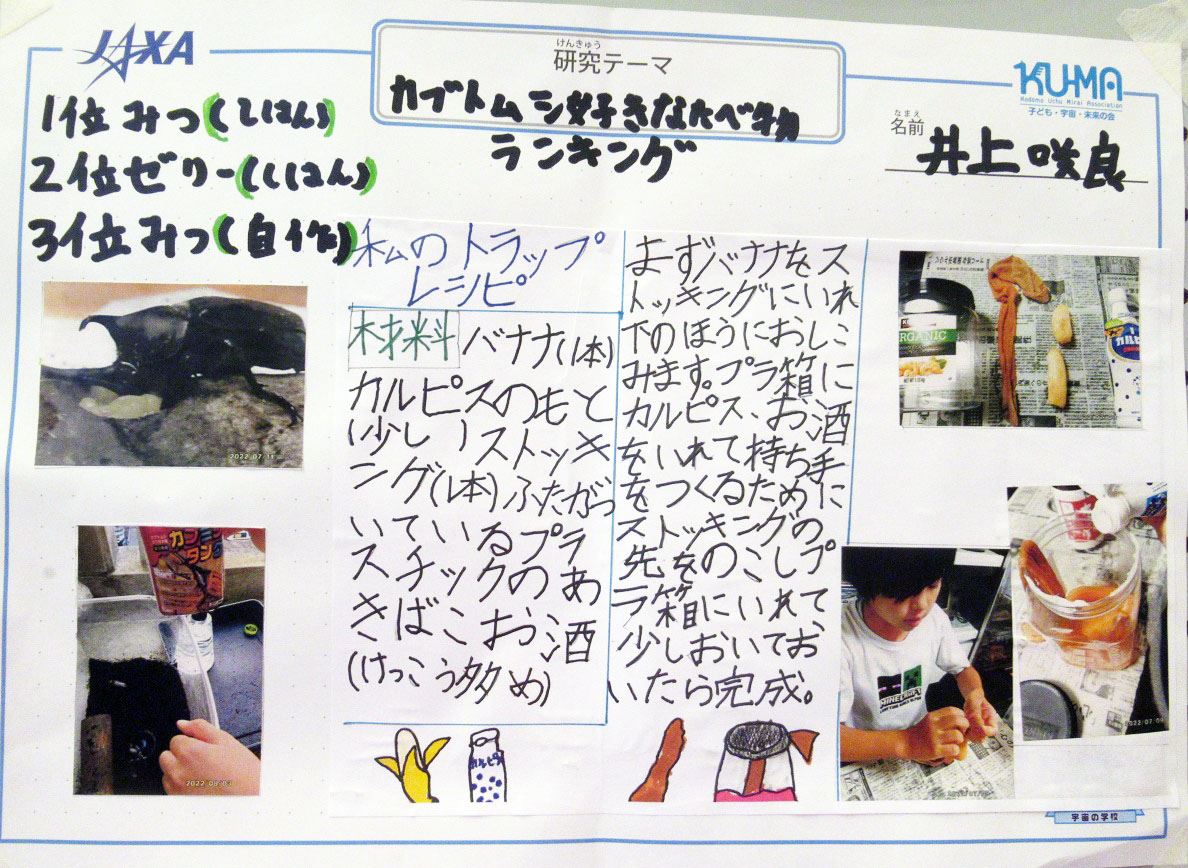 JAXA
けんきゅう
研究テーマ
カブトムシ好きなたべ物
ランキング
KU-MA
Kodomo Uchu Mirai Association
子ども・宇宙・未来の会
なまえ
名前
井上咲良
1位みつ(しはん)
2位ゼリー(しはん)
3位みつ(自作)
私のトラップ
レシピ
材料 バナナ(1本)
カルピスのもと
(少し)ストッキ
ング(1本)ふたがつ
いているプラ
スチックのあ
きばこお酒
(けっこう多め)
まずバナナをス
トッキングにいれ
下のほうにおしこ
みます。プラ箱に
カルピス、お酒
をいれて持ち手
をつくるために
ストッキングの
先をのこしプ
ラ箱にいれて
少しおいてお
いたら完成。
カルピス
ORGANIC
MINECRAFT
2022/07/11
2022/08/03
2022/07/09
宇宙の学校